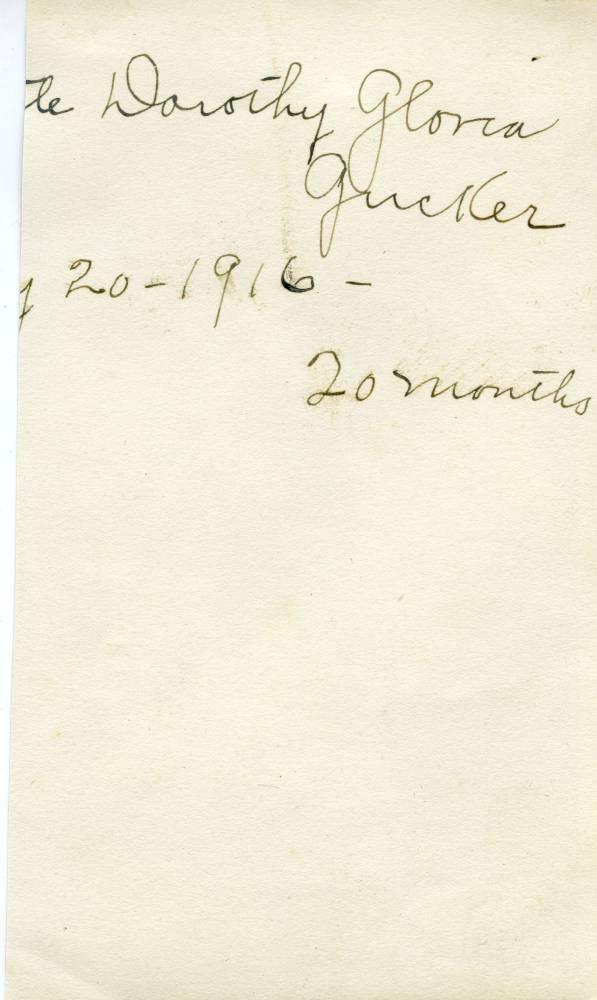 tle Dorothy Gloria
Gucker
20-1916-
20 months